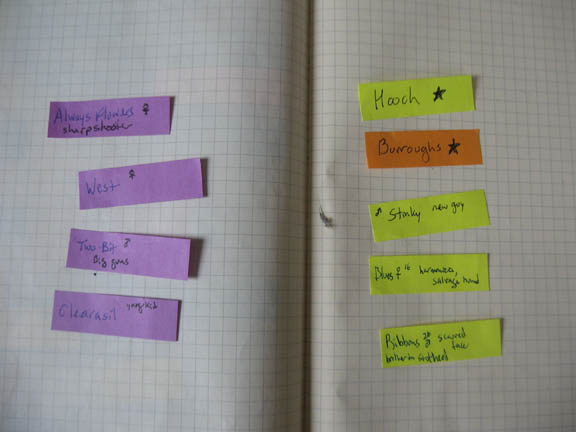 Always Flowers ♀
sharpshooter
West ♀
Two Bit ♂
Big guns
Clearasil young kid
Hooch ★
Burroughs ★
♂ Stinky new guy
Blues ♀ harmonica,
salvage hand
Ribbons ♂ scarred
face